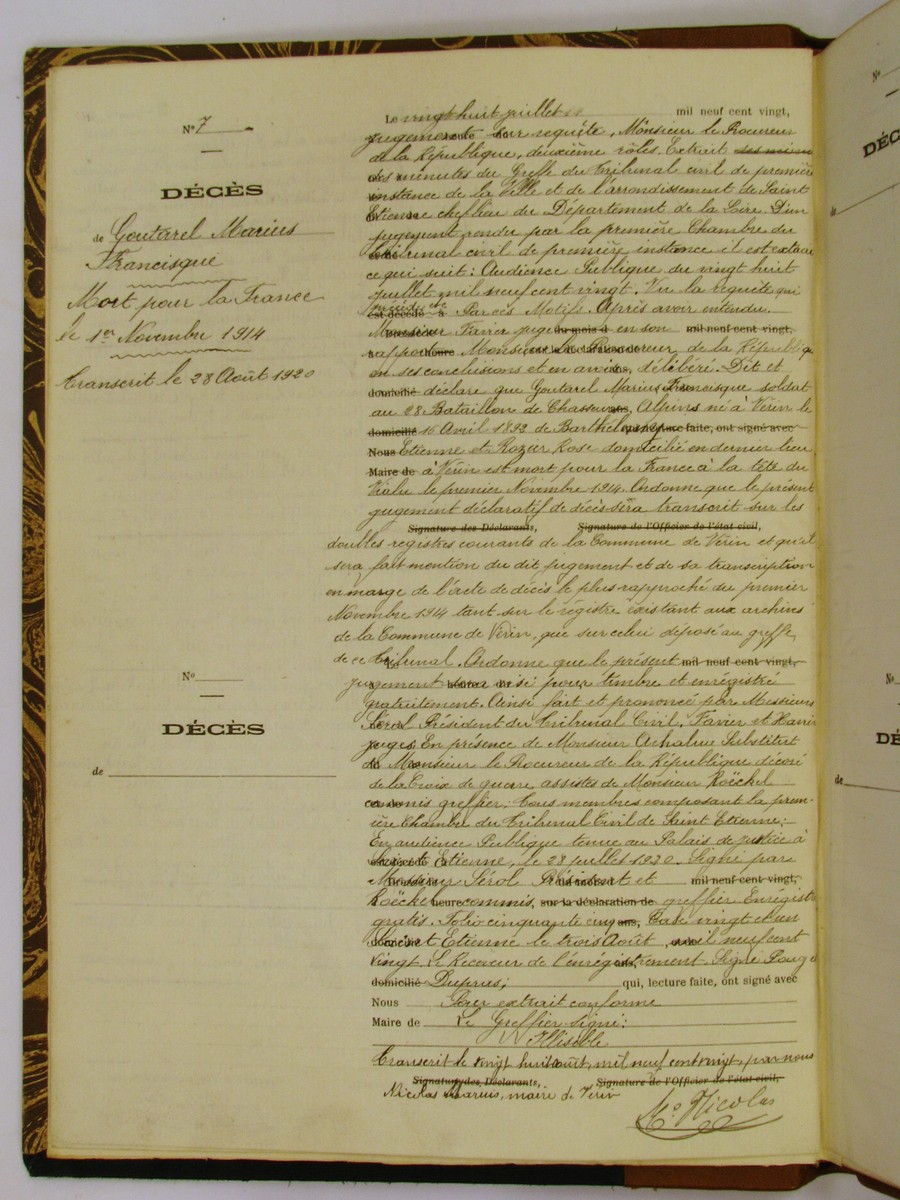 N° 7
DÉCÈS
de Goutarel Marius
Francisque
Mort pour la France
le 1er Novembre 1914
Transcrit le 28 Août 1920
Le vingt huit juillet mil neuf cent vingt,
jugement sur requête, Monsieur le Procureur
de la République, deuxième rôles. Extrait
des minutes du Greffe du Tribunal civil de première
instance de la Ville et de l'arrondissement de Saint
Etienne chef lieu du Département de la Loire. D'un
jugement rendu par la première Chambre du
tribunal civil de première instance il est extrait
ce qui suit : Audience Publique du vingt huit
juillet mil neuf cent vingt. Vu la requête qui
précède est décédé à Par ces Motifs. Après avoir entendu
Monsieur Favier juge du mois d en son mil neuf cent vingt,
rapport heure Monsieur sur la déclaration de le Procureur de la République
en ses conclusions et en avoir délibéré. Dit et
domicilié déclare que Goutarel Marius Francisque soldat
au 28 Bataillon de Chasseurs Alpins né à Vérin le
domicilié 16 Avril 1892 de Barthélemy lecture faite, ont signé avec
Nous Etienne et Rozur Rose domicilié en dernier lieu
Maire de à Vérin est mort pour la France à la tête du
Violu le premier Novembre 1914. Ordonne que le présent
jugement déclaratif de décès sera transcrit sur les
Signature des Déclarants, Signature de l'Officier de l'état civil,
doubles registres courants de la Commune de Vérin et qu'il
sera fait mention du dit jugement et de sa transcription
en marge de l'acte de décès le plus rapproché du premier
Novembre 1914 tant sur le régistre existant aux archives
de la Commune de Vérin, que sur celui déposé au greffe
de ce Tribunal. Ordonne que le présent mil neuf cent vingt,
jugement sera visé pour timbre et enregistré
gratuitement. Ainsi fait et prononcé par Messieurs
Sérol Président du Tribunal Civil. Favier et
juges. En présence de Monsieur Achalme Substitut
de Monsieur le Procureur de la République décoré
de la Croix de guerre assistés de Monsieur Roëckel
commis greffier. Tous membres composant la prem-
ière Chambre du Tribunal Civil de Saint Etienne.-
En audience Publique tenue au Palais de justice à
Saint Etienne, le 28 juillet 1920. Signé par
Monsieur Sérol Président et mil neuf cent vingt,
Roëckel heure commis, sur la déclaration de greffier Enrégistré
gratis. Folio cinquante cinq ans, Case vingt et un
Saint Etienne le trois Août mil neuf cent
vingt. Le Receveur de l'enrégistrement. Signé
domicilié Dupuis, qui, lecture faite, ont signé avec
Nous Pour extrait conforme
Maire de Le Greffier signé :
Illisible
Transcrit le vingt huit août, mil neuf cent vingt, par nous
Signature des Déclarants, Signature de l'Officier de l'état civil,
Nicolas Marius, maire de Vérin
Ms Nicolas
N°
DÉCÈS
de
N°
DÉC
N°
DÉ
de